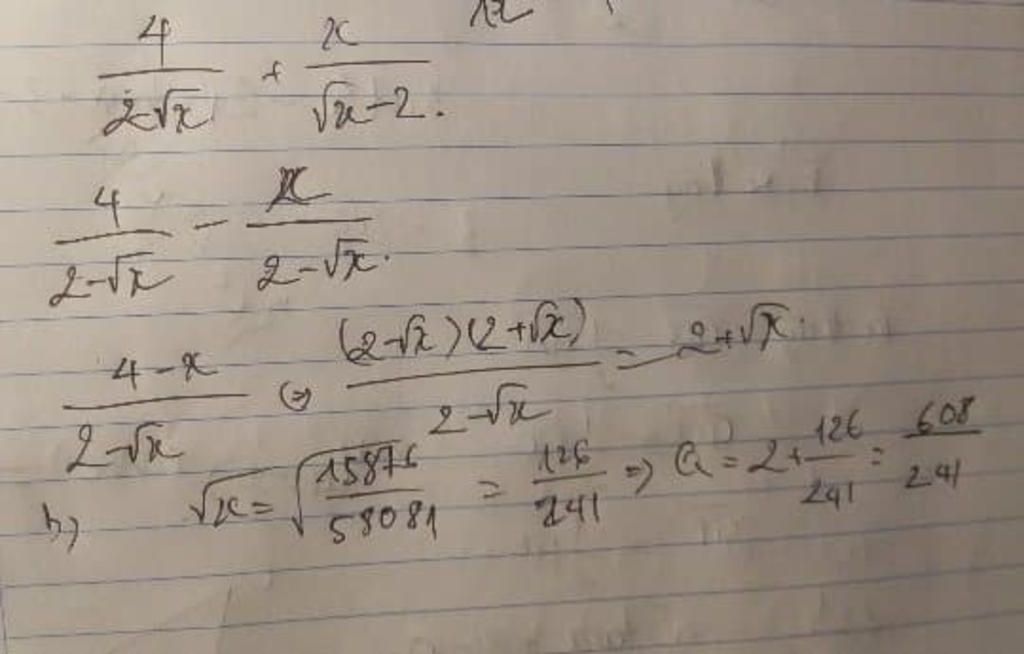 4/2-√x + x/√x-2.
4/2-√x - x/2-√x.
4-x/2-√x (=) (2-√x)(2+√x)/2-√x = 2+√x.
b) √x = √15876/58081 = 126/241 => Q = 2+126/241 = 608/241